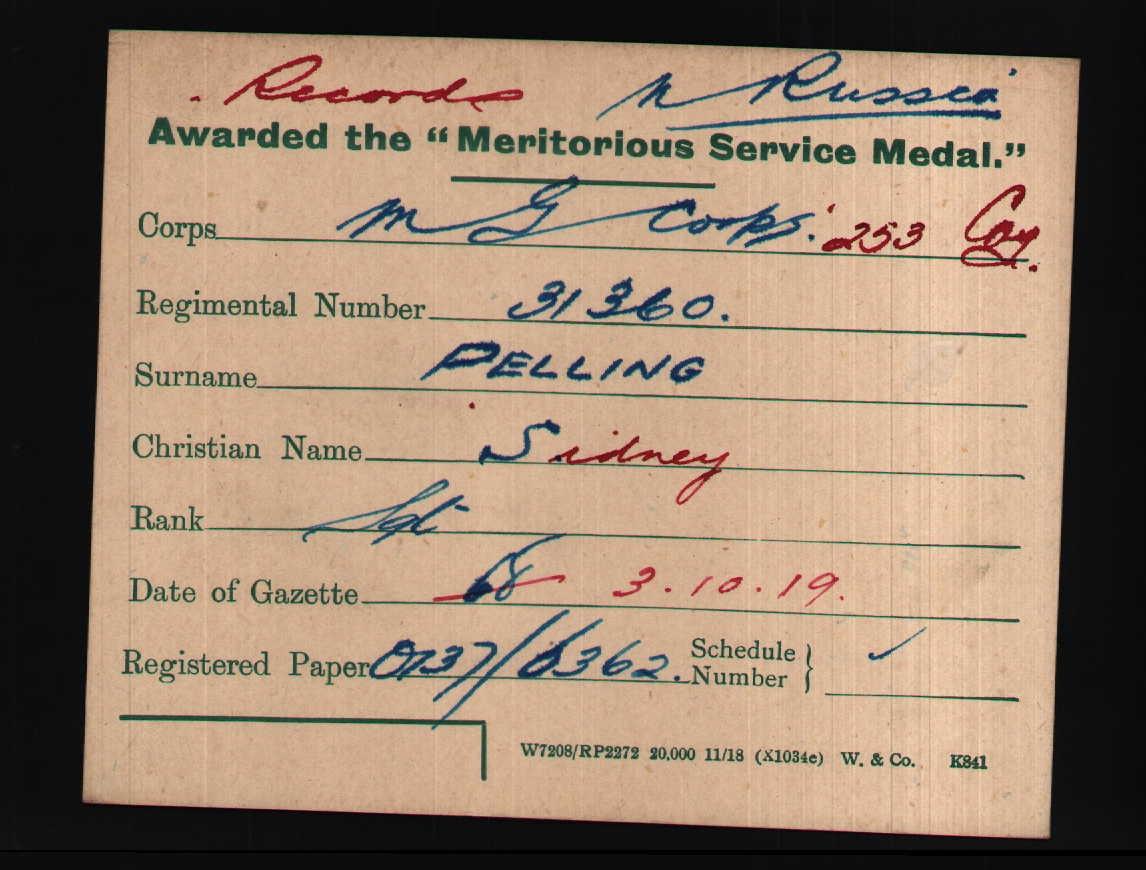 Records N Russia
Awarded the "Meritorious Service Medal."
Corps M G Corps. 253 Coy.
Regimental Number 31360.
Surname PELLING
Christian Name Sidney
Rank Sgt
Date of Gazette 3.10.19.
Registered Paper 0137/6362. Schedule Number } ✓
W7208/RP2272 20,000 11/18 (X1034e) W. & Co. K841